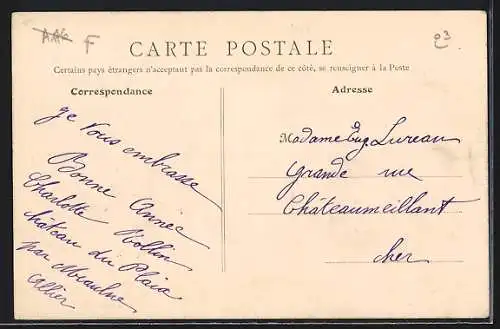 AAG F
23
CARTE POSTALE
Certains pays étrangers n'acceptant pas la correspondance de ce côté, se renseigner à la Poste
Correspondance
je vous embrasse
Bonne Année
Charlotte Rollin
château du Plaix
par Meaulne
Allier
Adresse
Madame Eug. Lureau
Grande rue
Châteaumeillant
Cher